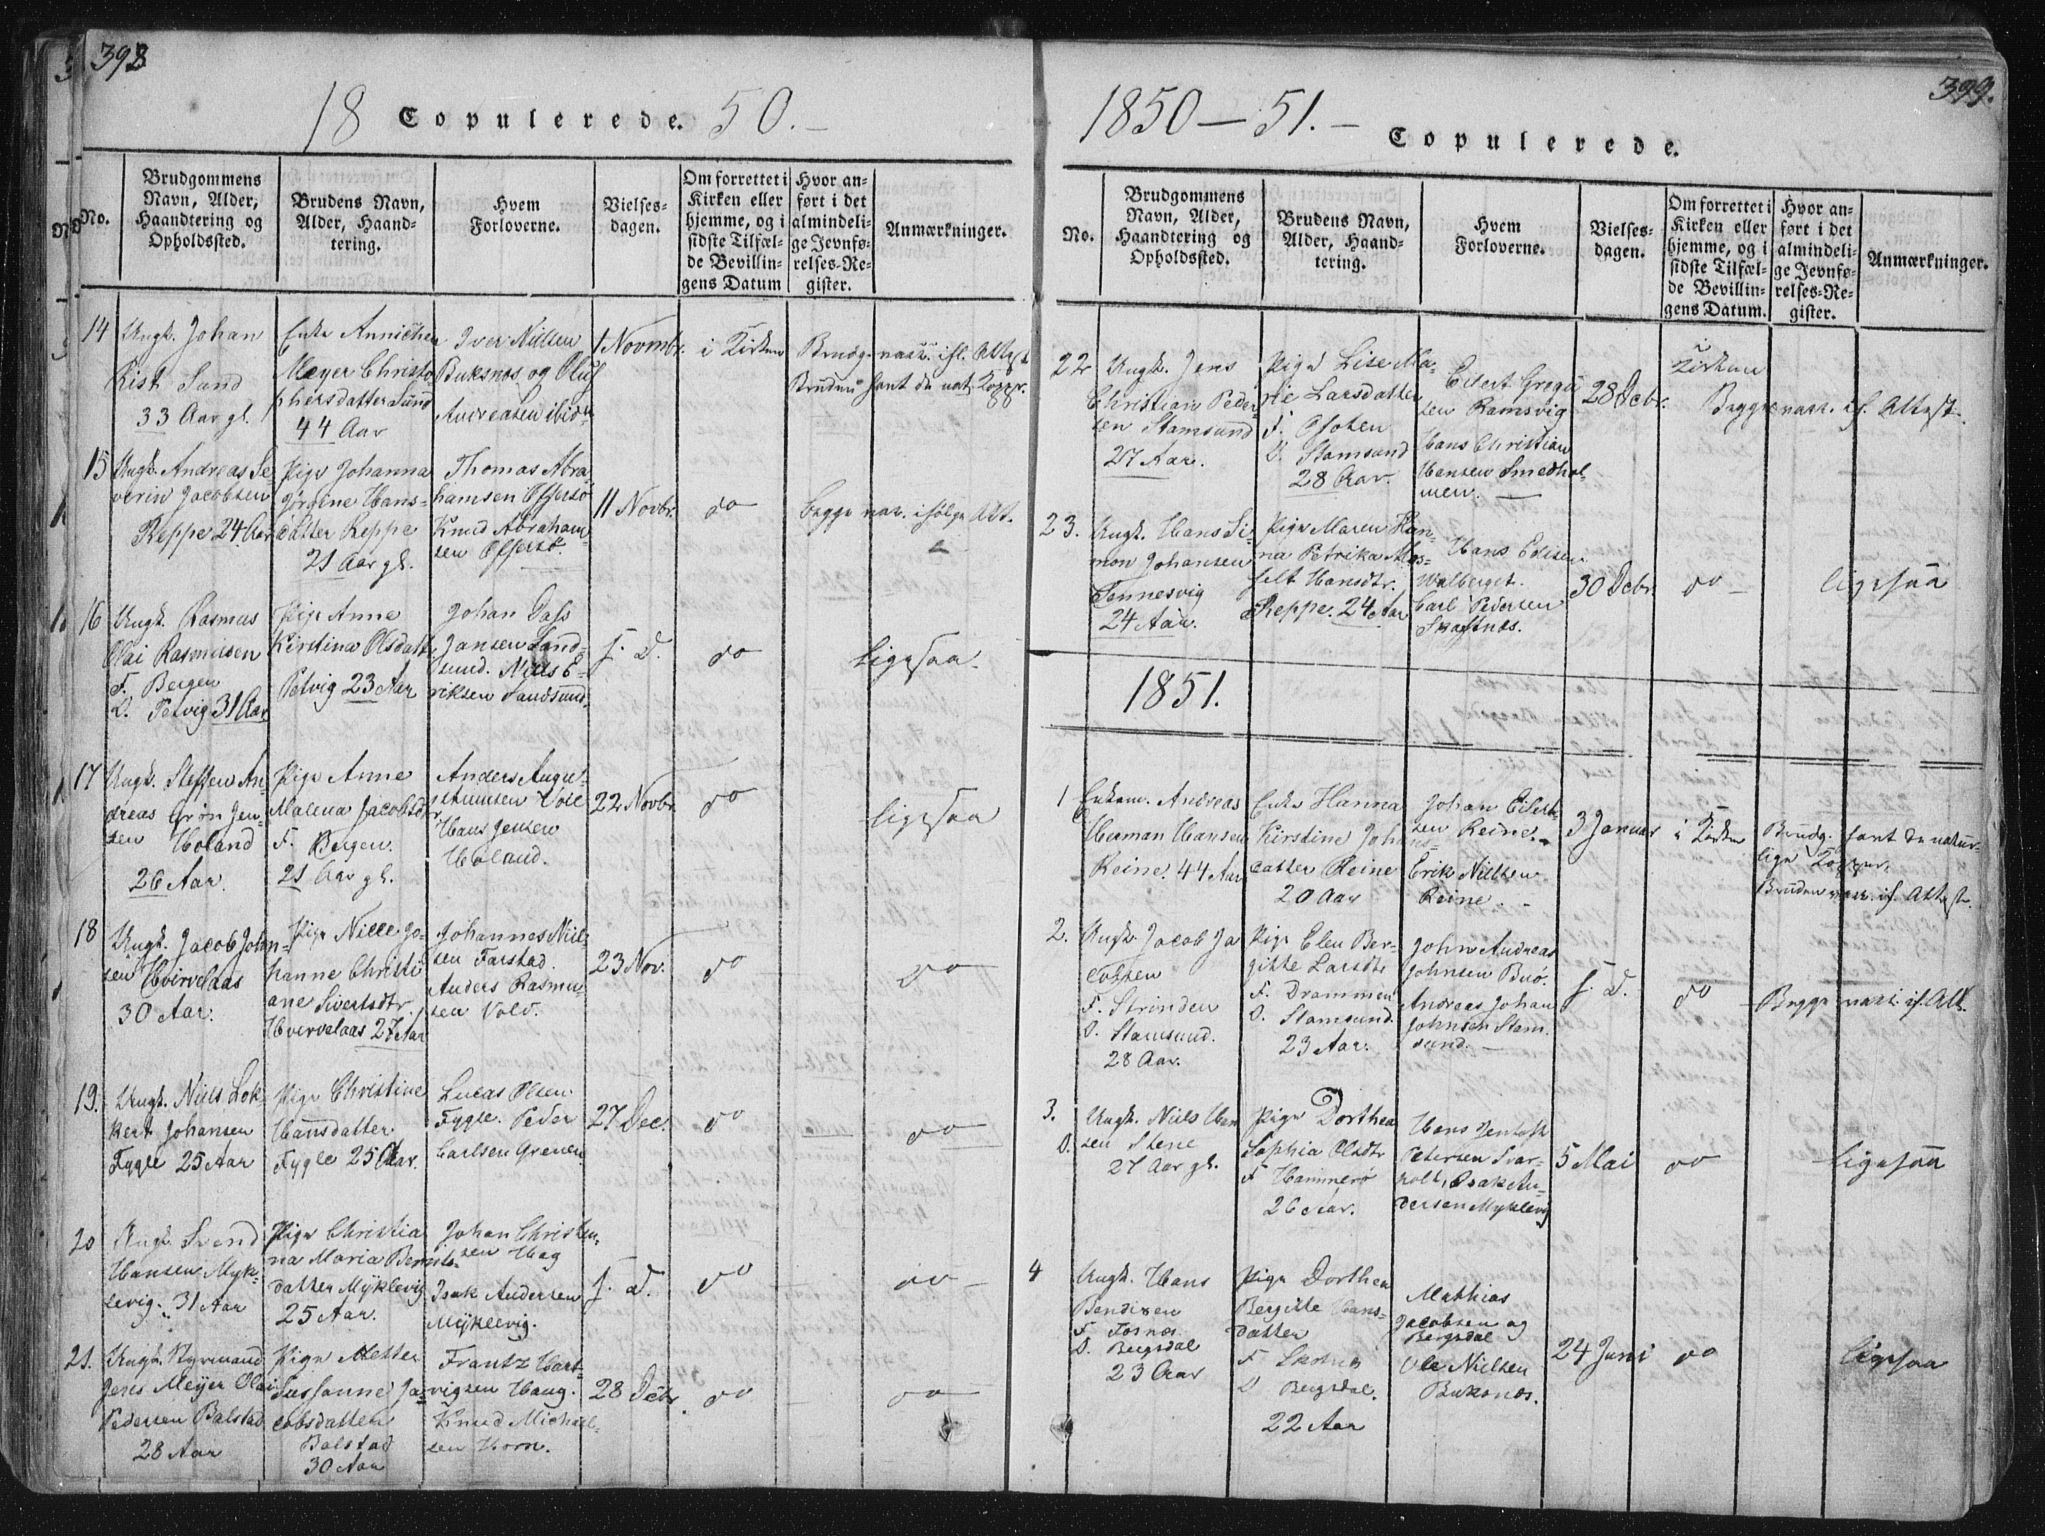 398
18 Copulerede. 50.
No.
Brudgommens Navn, Alder, Haandtering og Opholdssted.
Brudens Navn, Alder, Haandtering.
Hvem Forloverne.
Vielsesdagen.
Om forrettet i Kirken eller hjemme, og i sidste Tilfælde Bevillingens Datum
Hvor anført i det almindelige Jevnførelses-Register.
Anmærkninger.
14
Ungk. Johan
Sund
33 Aar gl.
Enke Annichen
Meyer Christo
phersdatter Sund
44 Aar
Iver Nilsen
Buksnes og Oluf
Andreasen ibid
1 Novmbr.
i Kirken
Brudg. vacc. ifl. Attest
Bruden havt de nat. Kopper.
15
Ungk. Andreas Se
verin Jacobsen
Reppe 24 Aar
Pige Johanna
Jørgine Hans-
datter Reppe
21 Aar gl.
Thomas Abra
hamsen Offersø
Knud Abraham
sen Offersø.
11 Novbr.
do
begge vac. ifølge Att.
16
Ungk. Rasmus
Olai Rasmusen
F. Bergen
O. Petvig 31 Aar
Pige Anne
Kirstina Olsdatt
Petvig 23 Aar
Johan Dass
Jansen Sand-
sund. Niels E-
riksen Sandsund.
s. D.
do
ligesaa.
17
Ungk. Steffen An-
dreas Grøn Jen-
sen Holand
26 Aar.
Pige Anne
Malena Jacobsdtr
F. Bergen.
21 Aar gl.
Anders Augu-
stinusen Vole
Hans Jensen
Holand.
22 Novbr.
do
ligesaa
18
Ungk. Jacob John-
sen Hvervelaas
30 Aar.
Pige Nille Jo-
hanne Christi
ane Sivertsdtr.
Hvervelaas 27 Aar
Johannes Niel-
sen Farstad.
Anders Rasmu-
sen Vold.
23 Nov.
do
do
19.
Ungk. Niels Lok
kert Johansen
Fygle 25 Aar
Pige Christine
Hansdatter
Fygle 25 Aar.
Lucas Olsen
Fygle. Peder
Carlsen Grenen.
27 Dec.
do
do
20
Ungk. Svend
Hansen Myk-
levig. 31 Aar
Pige Christia
na Maria Bernts-
datter Myklevig
25 Aar.
Johan Christen-
sen Hag
Isak Andersen
Myklevig.
s. d.
do
do
21.
Ungk. Styrmand
Jens Meyer Olai
Pedersen Balstad
28 Aar
Pige Mette
Sussanne Ja-
cobsdatter
Balstad
30 Aar
Frantz Hart-
vigsen Haug.
Knud Michael-
sen Horn.
28 Debr.
do
do
399.
1850–51.
Copulerede.
No.
Brudgommens Navn, Alder, Haandtering og Opholdssted.
Brudens Navn, Alder, Haandtering.
Hvem Forloverne.
Vielsesdagen.
Om forrettet i Kirken eller hjemme, og i sidste Tilfælde Bevillingens Datum.
Hvor anført i det almindelige Jevnførelses-Register.
Anmærkninger.
22
Ungk. Jens
Christian Peder-
sen Stamsund
27 Aar.
Pige Lise Ma-
rie Larsdatter
F. Ofoten
O. Stamsund
28 Aar.
Eilert Gregu
sen Ramsvig
Hans Christian
Hansen Smedhol-
men.
28 Debr.
i
Kirken
Begge vacc. if. Attest.
23.
Ungk. Hans Si-
mon Johansen
Tennesvig
24 Aar.
Pige Maren Han-
na Petrika Mos-
felt Hansdtr.
Reppe. 24 Aar
Hans Edisen
Walberget.
Carl Pedersen
Skaftnæs.
30 Debr.
do
ligesaa
1851.
1
Enkem. Andreas
Herman Hansen
Reine. 44 Aar
Enke Hanna
Kirstine Johans-
datter Reine
20 Aar
Johan Eilert-
sen Reine.
Erik Nielsen
Reine.
3 Januar
i Kirken
Brudg. havt de natur-
lige Kopper,
Bruden vacc. if. Attest.
2.
Ungk. Jacob Ja
cobsen
F. Strinden
O. Stamsund.
28 Aar.
Pige Elen Ber-
gitte Larsdtr
F. Drammen
O. Stamsund.
23 Aar.
John Andreas
Johnsen Buø.
Andreas Johan
Johnsen Stam-
sund.
s. D.
do
Begge vacc. if. Att.
3.
Ungk. Niels Han
O.
sen Stene
27 Aar gl.
Pige Dorthea
Sophia Olsdtr
F Hammerø
26 Aar.
Hans Jentoft
Petersen Svar-
holt, Isak An-
dersen Myklevig
5 Mai
do
ligesaa
4
Ungk. Hans
Bendixen
F. Fosnæs
O. Bergsdal
23 Aar
Pige Dorthea
Bergitte Hans-
datter
F
O Bergsdal.
22 Aar
Mathias
Jacobsen og
Bergsdal
Ole Nielsen
Buksnæs.
24 Juni
do
ligesaa